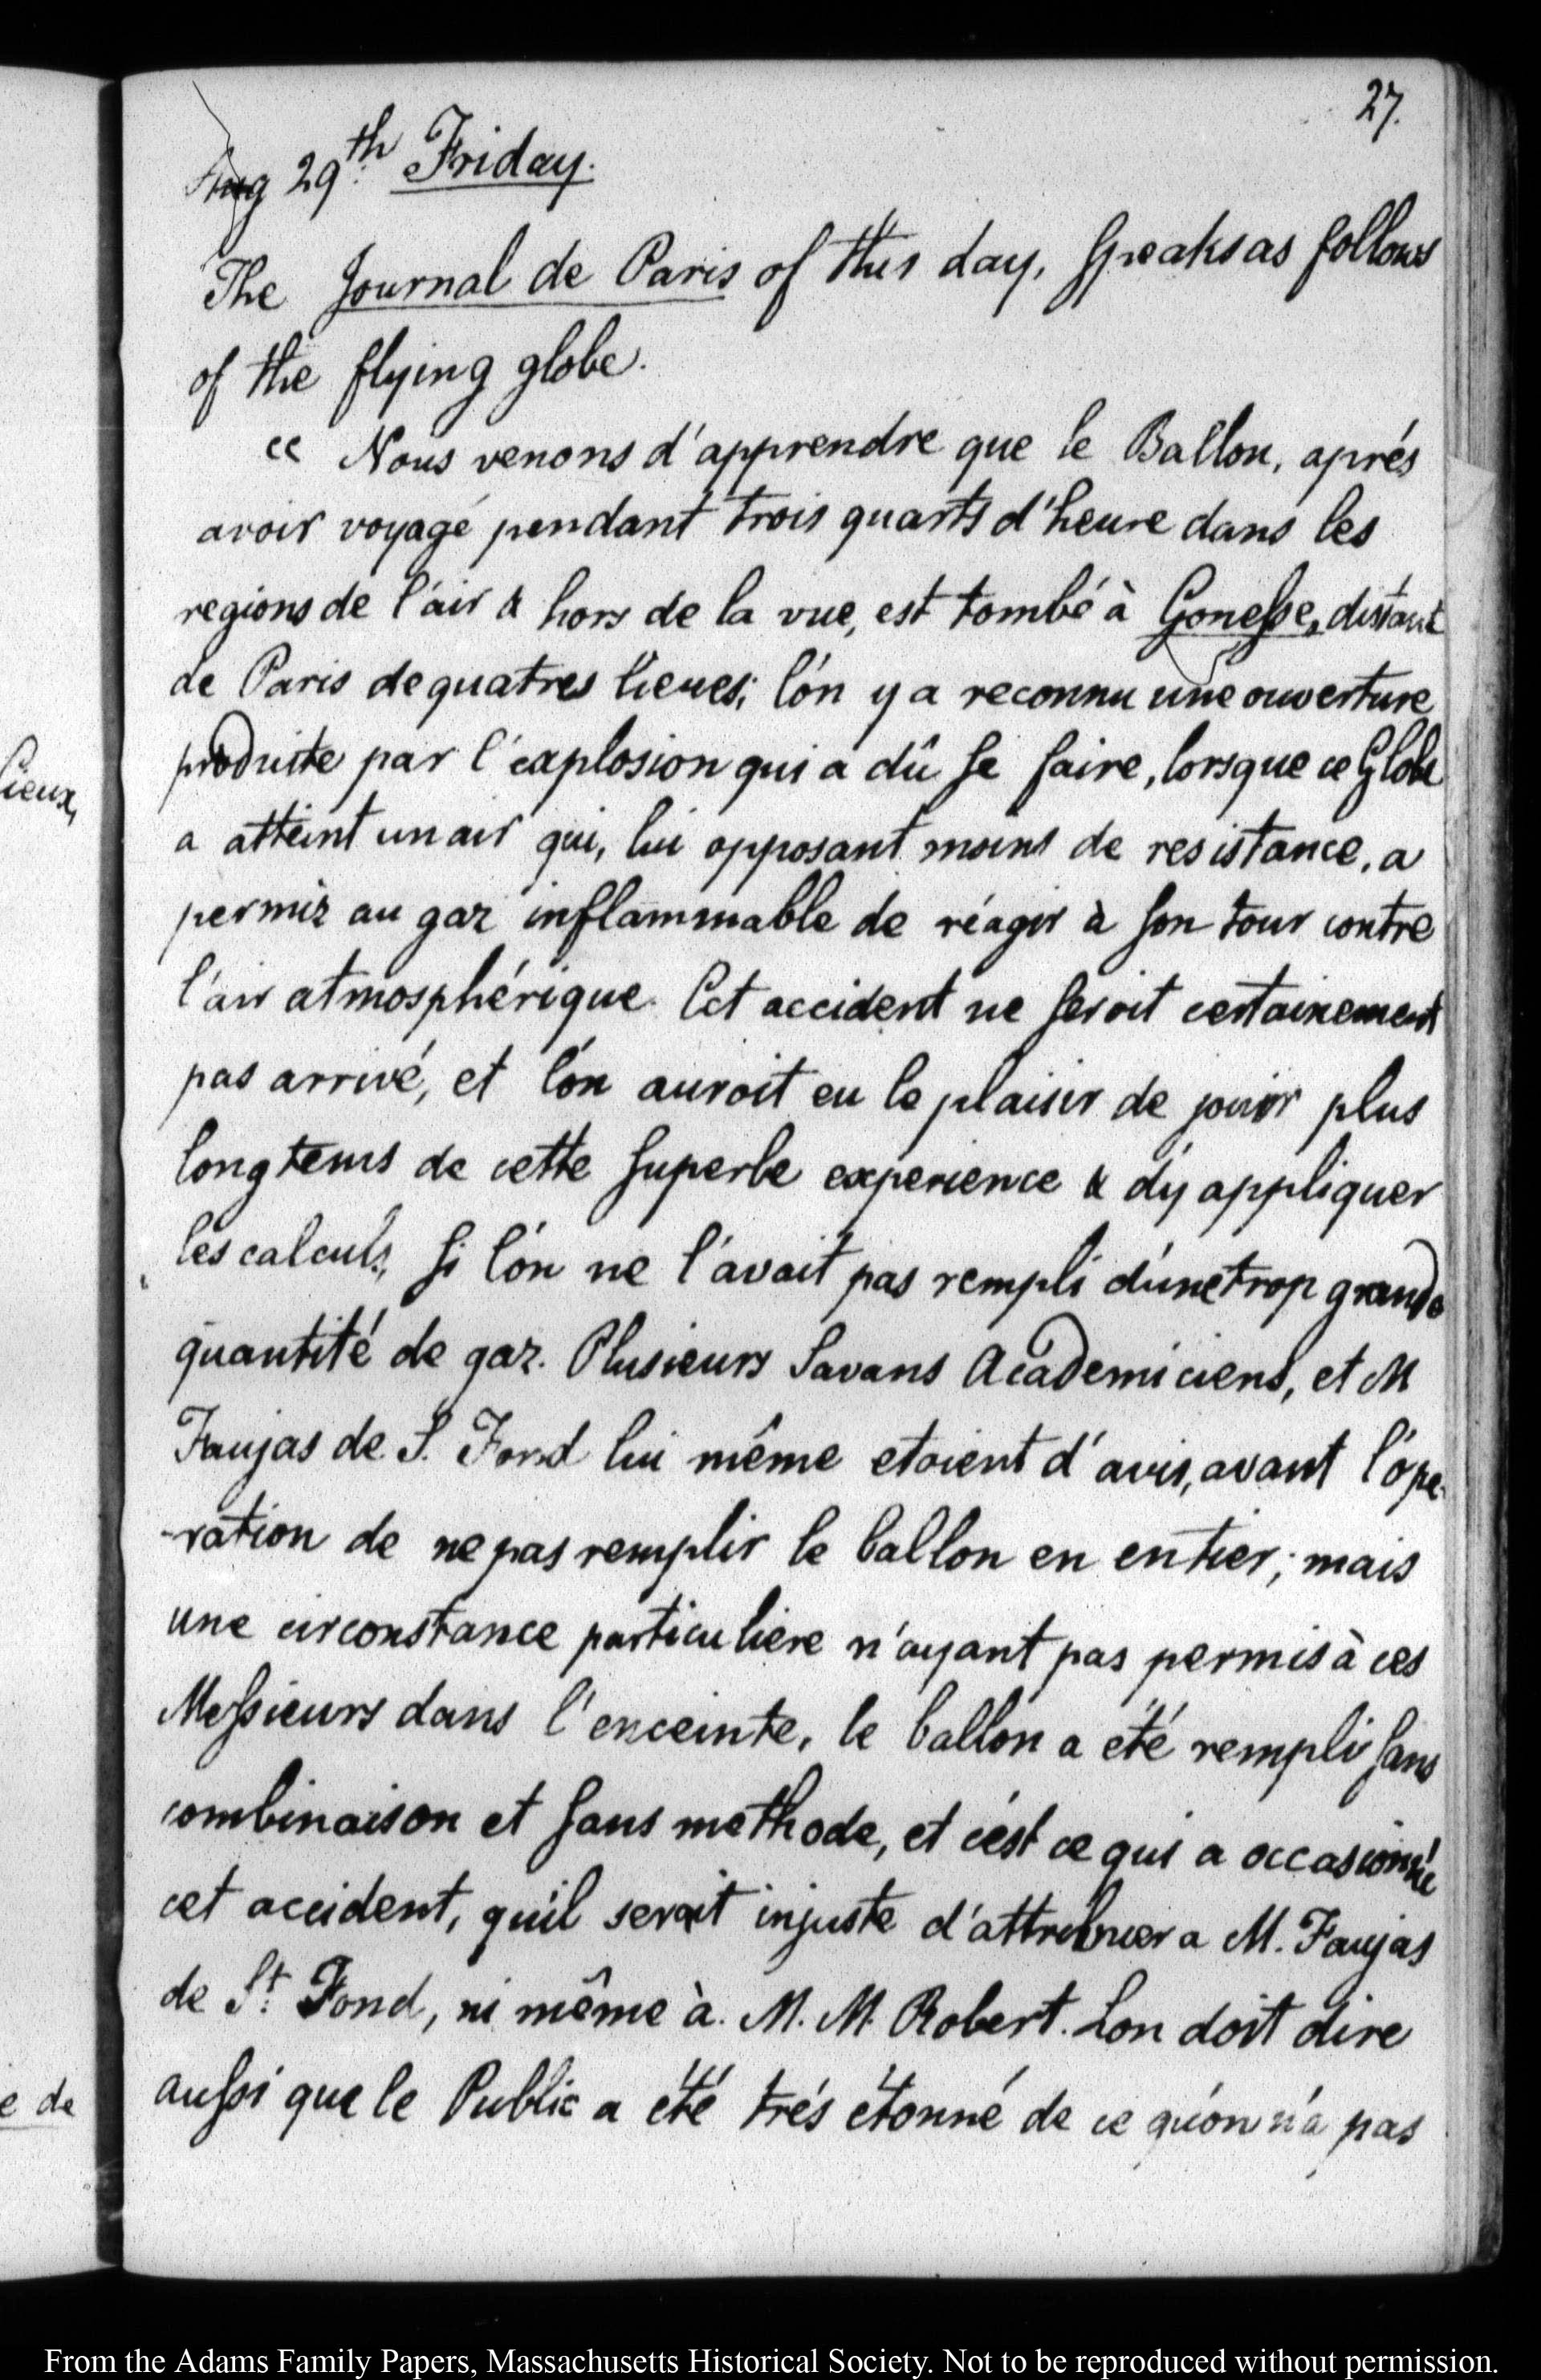 27.
Aug 29th Friday.
The Journal de Paris of this day, speaks as follows
of the flying globe.
"Nous venons d'apprendre que le Ballon, aprés
avoir voyagé pendant trois quarts d'heure dans les
regions de l'air & hors de la vue, est tombé à Gonesse, distant
de Paris de quatres lieues; l'on y a reconnu une ouverture
produite par l'explosion qui a dû se faire, lorsque ce Globe
a atteint un air qui, lui opposant moins de resistance, a
permis au gaz inflammable de réagir à son tour contre
l'air atmosphérique. Cet accident ne seroit certainement
pas arrivé, et l'on auroit eu le plaisir de jouir plus
longtems de cette superbe experience & d'y appliquer
les calculs, si l'on ne l'avait pas rempli d'une trop grande
quantité de gaz. Plusieurs Savans Academiciens, et M
Faujas de S. Fond lui même etoient d'avis, avant l'ope-
-ration de ne pas remplir le ballon en entier; mais
une circonstance particuliere n'ayant pas permis à ces
Messieurs dans l'enceinte, le ballon a été rempli sans
combinaison et sans methode, et c'est ce qui a occasionné
cet accident, qu'il serait injuste d'attribuer a M. Faujas
de St. Fond, ni même à M. M. Robert. Lon doit dire
aussi que le Public a été trés étonné de ce qu'on n'a pas
lieux,
e de
From the Adams Family Papers, Massachusetts Historical Society. Not to be reproduced without permission.